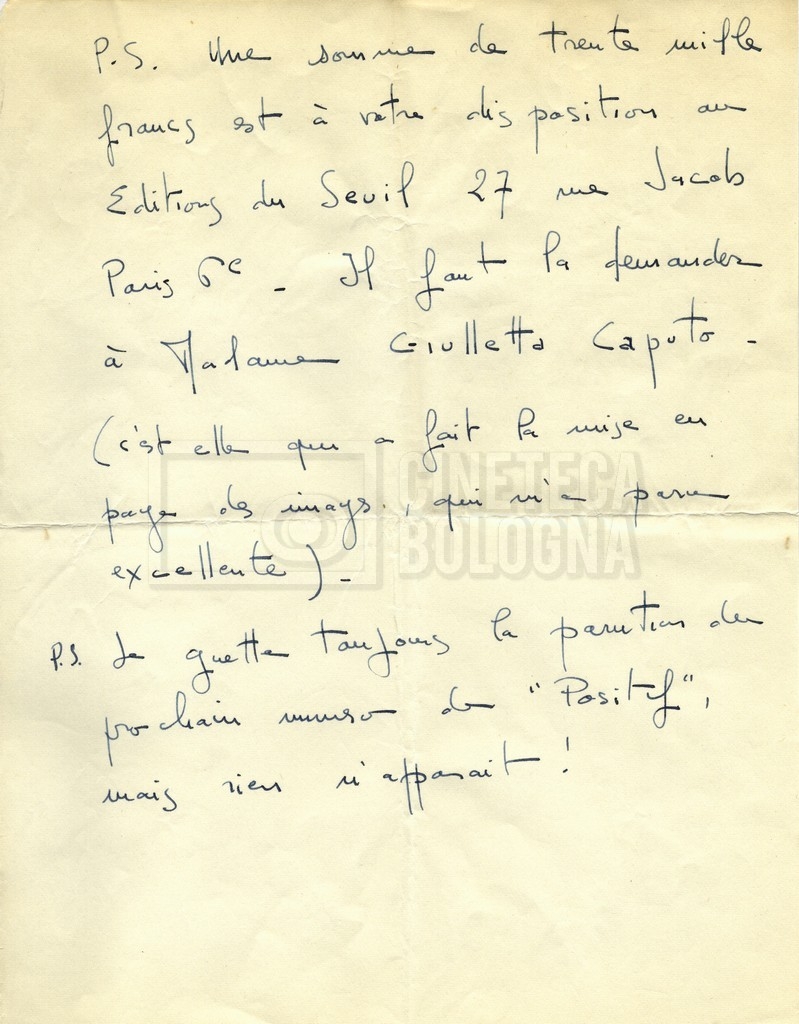 P.S. Une somme de trente mille
francs est à votre disposition au
Editions du Seuil 27 rue Jacob
Paris 6e - Il faut la demander
à Madame Giulletta Caputo -
(c'est elle qui a fait la mise en
page des images, qui m'a paru
excellente) -
P.S. Je guette toujours la parution du
prochain numero de "Positif",
mais rien n'apparait !
CINETECA
BOLOGNA